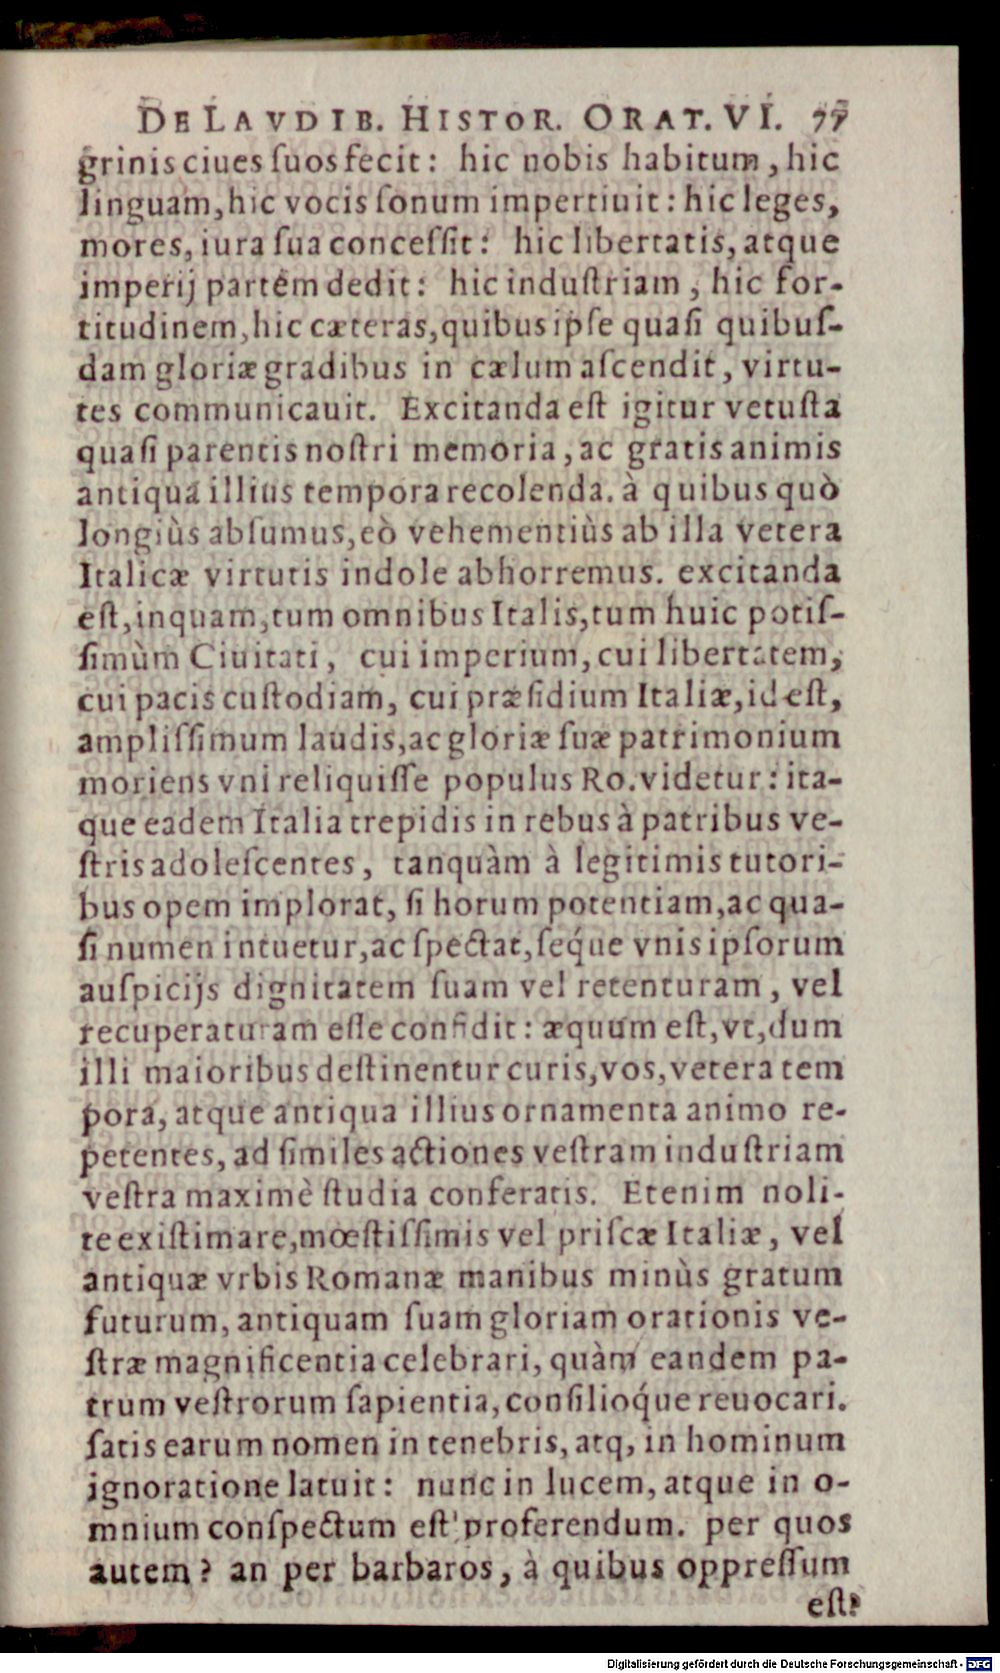 DE LAVDIB. HISTOR. ORAT. VI. 77
grinis ciues ſuos fecit: hic nobis habitum, hic
linguam, hic vocis ſonum impertiuit: hic leges,
mores, iura ſua conceſſit: hic libertatis, atque
imperij partem dedit: hic induſtriam, hic for-
titudinem, hic cæteras, quibus ipſe quaſi quibuſ-
dam gloriæ gradibus in cælum aſcendit, virtu-
tes communicauit. Excitanda eſt igitur vetuſta
quaſi parentis noſtri memoria, ac gratis animis
antiqua illius tempora recolenda. à quibus quò
longiùs abſumus, eò vehementiùs ab illa vetera
Italicæ virtutis indole abhorremus. excitanda
eſt, inquam, tum omnibus Italis, tum huic potiſ-
ſimùm Ciuitati, cui imperium, cui libertatem,
cui pacis cuſtodiam, cui præſidium Italiæ, id eſt,
ampliſſimum laudis, ac gloriæ ſuæ patrimonium
moriens vni reliquiſſe populus Ro. videtur: ita-
que eadem Italia trepidis in rebus à patribus ve-
ſtris adoleſcentes, tanquàm à legitimis tutori-
bus opem implorat, ſi horum potentiam, ac qua-
ſi numen intuetur, ac ſpectat, ſeq́ue vnis ipſorum
auſpicijs dignitatem ſuam vel retenturam, vel
recuperaturam eſſe confidit: æquum eſt, vt, dum
illi maioribus deſtinentur curis, vos, vetera tem
pora, atque antiqua illius ornamenta animo re-
petentes, ad ſimiles actiones veſtram induſtriam
veſtra maximè ſtudia conferatis. Etenim noli-
te exiſtimare, mœſtiſſimis vel priſcæ Italiæ, vel
antiquæ vrbis Romanæ manibus minùs gratum
futurum, antiquam ſuam gloriam orationis ve-
ſtræ magnificentia celebrari, quàm eandem pa-
trum veſtrorum ſapientia, conſilioq́ue reuocari.
ſatis earum nomen in tenebris, atq, in hominum
ignoratione latuit: nunc in lucem, atque in o-
mnium conſpectum eſt proferendum. per quos
autem? an per barbaros, à quibus oppreſſum
eſt?
Digitalisierung gefördert durch die Deutsche Forschungsgemeinschaft - DFG